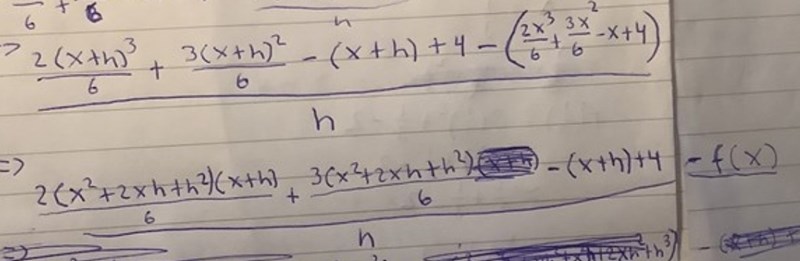 6 + 6
h
=> (2(x+h)³/6 + 3(x+h)²/6 - (x+h) + 4 - (2x³/6 + 3x²/6 - x + 4))/h
=> (2(x²+2xh+h²)(x+h)/6 + 3(x²+2xh+h²)/6 - (x+h)+4 - f(x))/h
=>